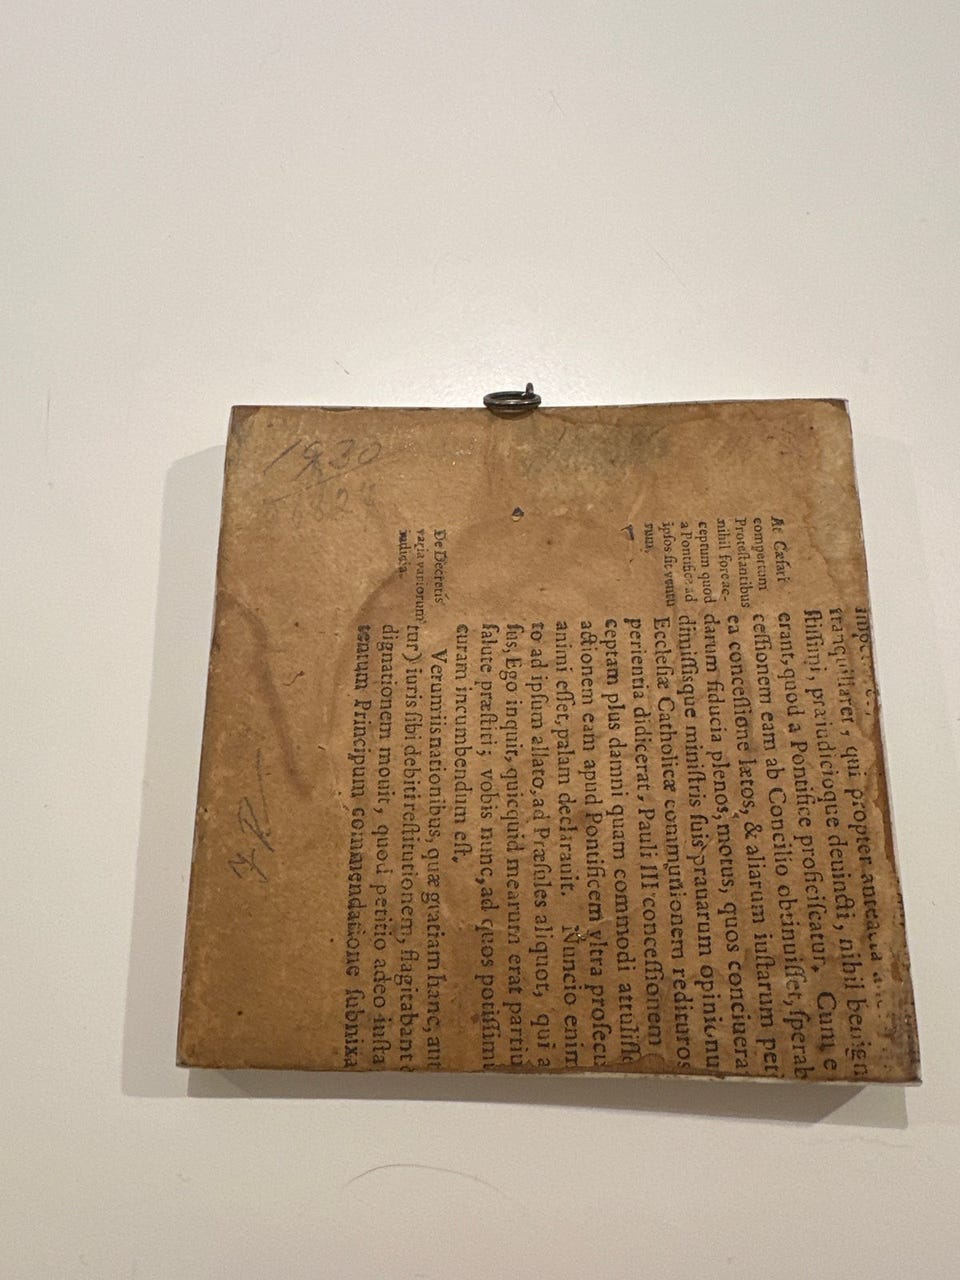 1930
At Cæsari
compertum
Protestantibus
nihil fore ac-
ceptum quod
a Pontifice ad
ipsos sit ventu
rum,
tranquillaret, qui propter anteacta
ſtiſſimi, præiudicioque deuincti, nihil benign
erant, quod a Pontifice proficiſcatur. Cum e
ceſſionem eam ab Concilio obtinuiſſet, ſperab
ea conceſſione lætos, & aliarum iuſtarum pet
darum fiducia plenos, motus, quos conciuera
dimiſſisque miniſtris ſuis prauarum opinionu
Eccleſiæ Catholicæ communionem redituros
perientia didicerat, Pauli III conceſſionem
ceptam plus damni quam commodi attuliſſe
actionem eam apud Pontificem vltra profectu
animi eſſet, palam declarauit. Nuncio enim
to ad ipſum allato, ad Præſules aliquot, qui a
ſus, Ego inquit, quicquid mearum erat partiu
ſalute præſtiti; vobis nunc, ad quos potiſſimu
curam incumbendum eſt.
De Decretis
varia variorum
iudicia.
Verum iis nationibus, quæ gratiam hanc, aut
tur) iuris ſibi debiti reſtitutionem, flagitabant
dignationem mouit, quod petitio adeo iuſta
tentum Principum commendatione ſubnixa